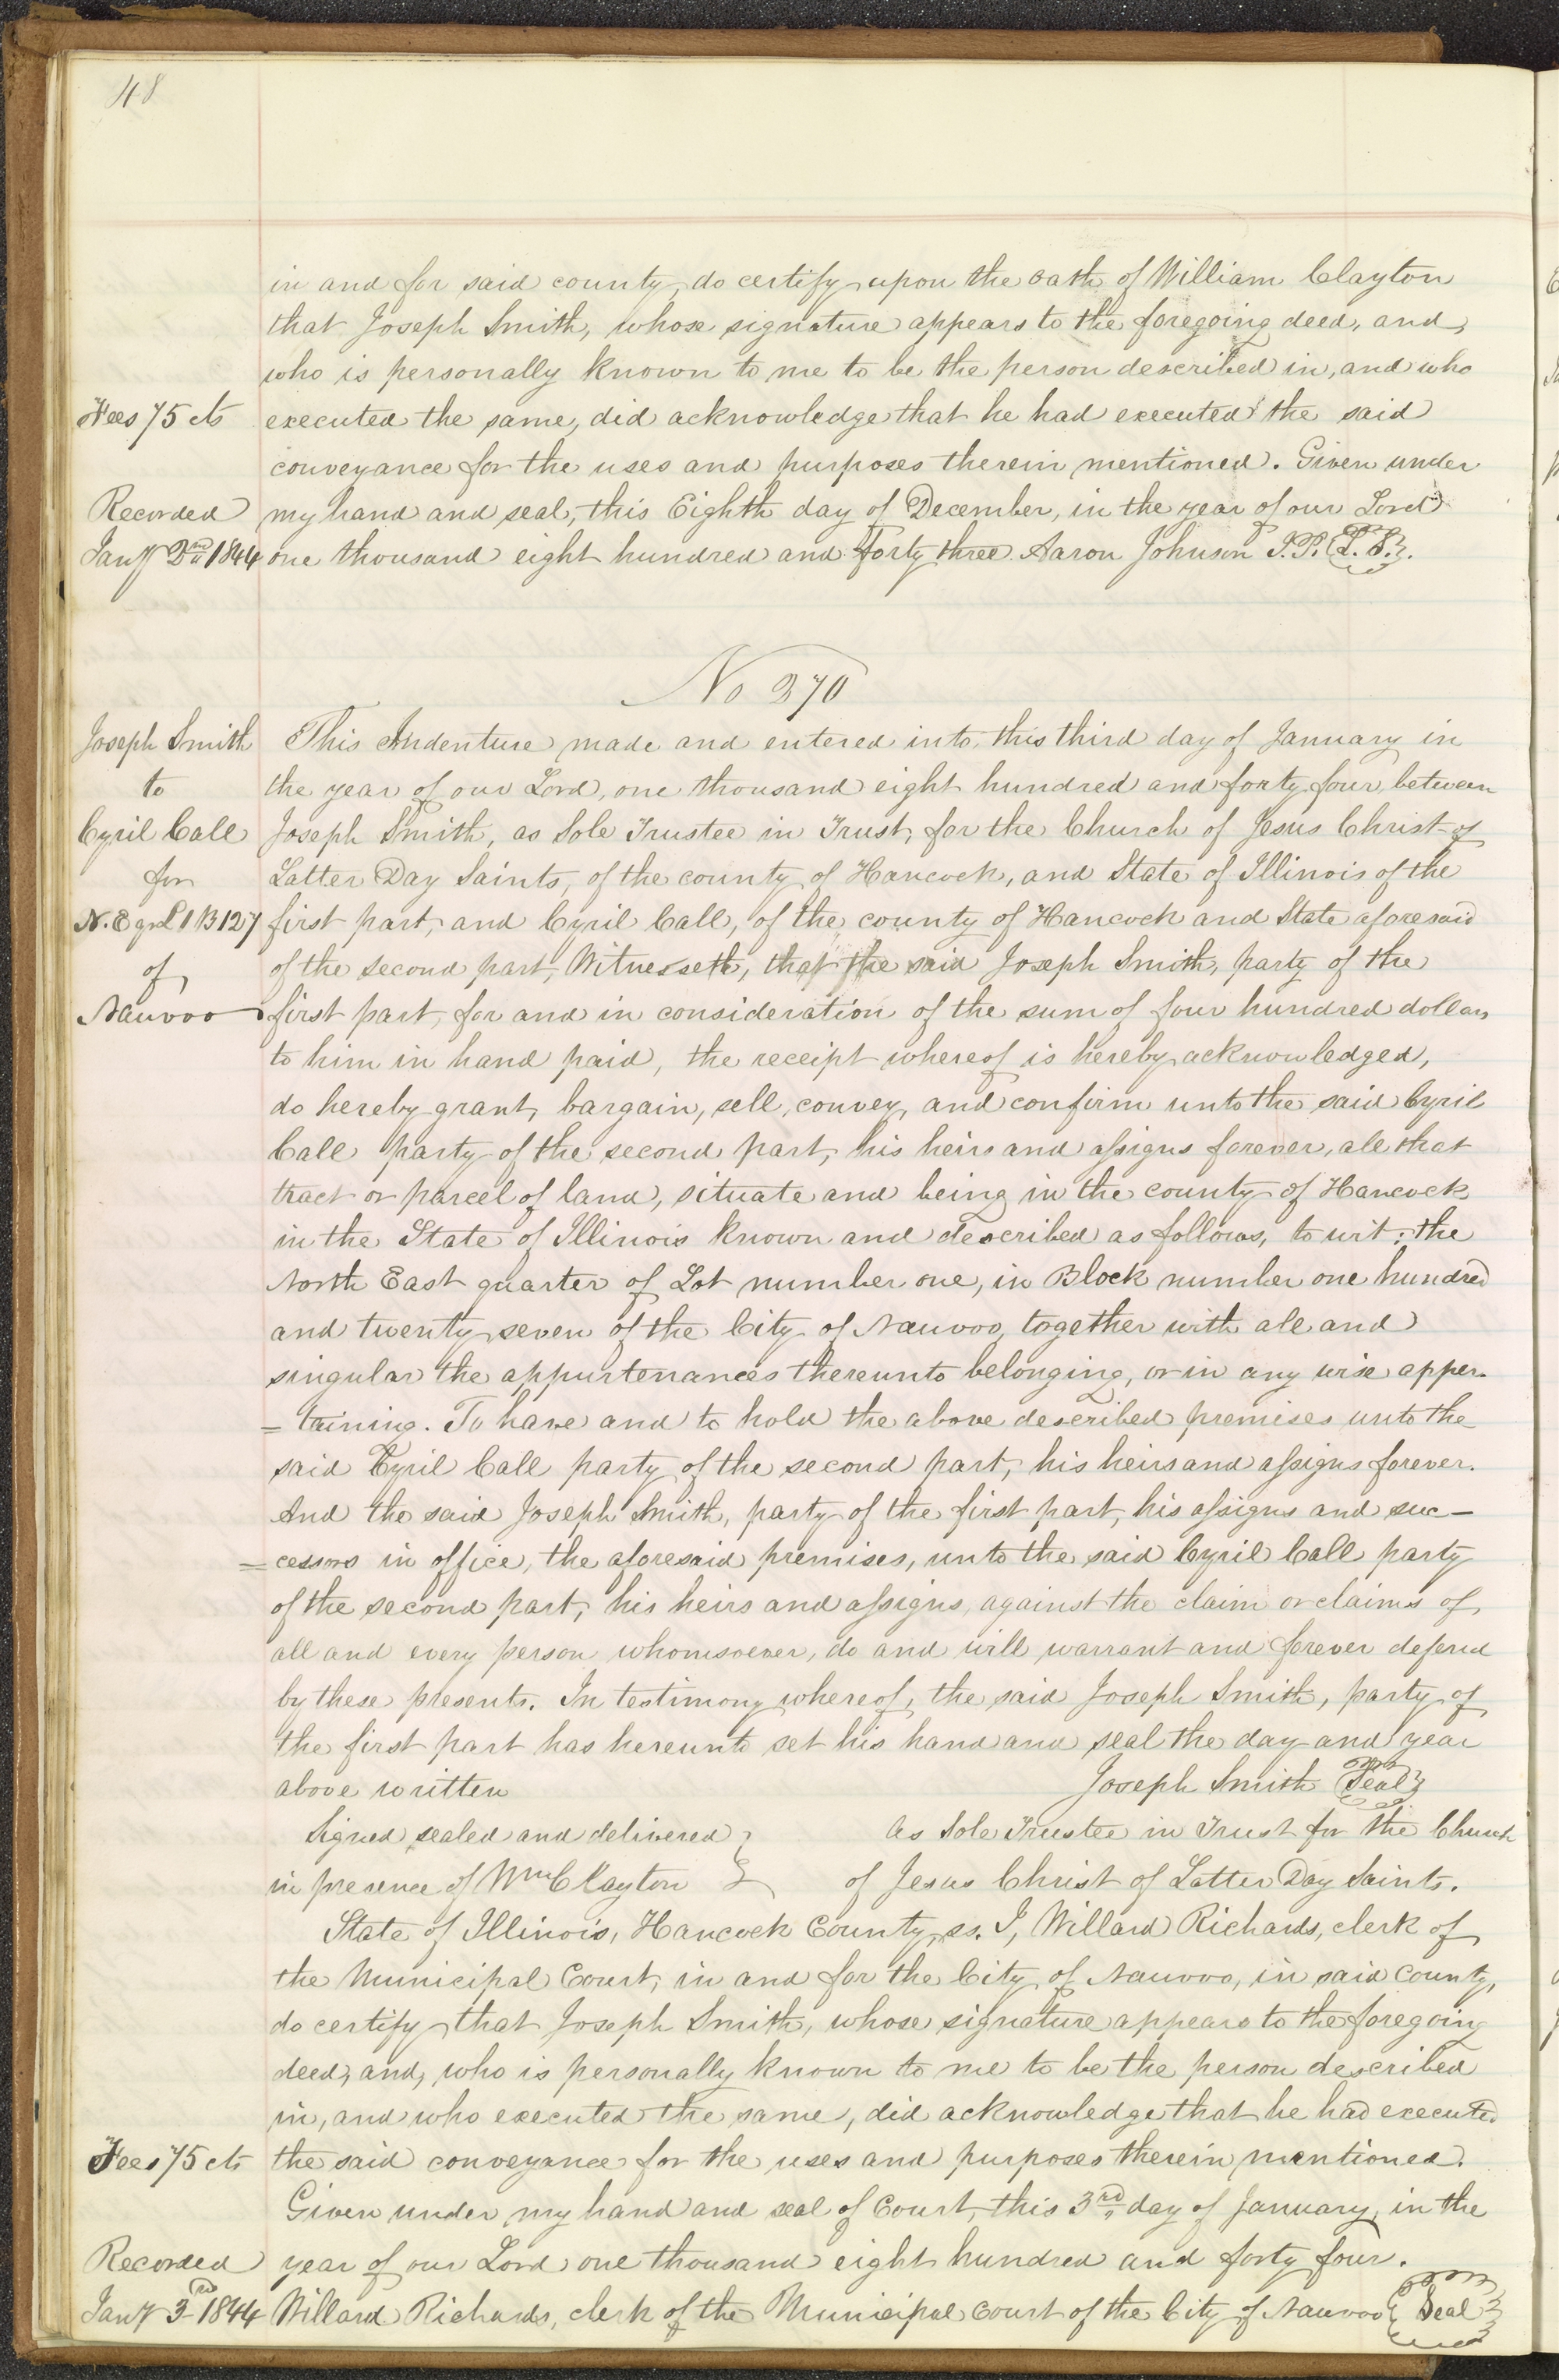 48
in and for said county, do certify upon the oath of William Clayton
that Joseph Smith, whose signature appears to the foregoing deed, and,
who is personally known to me to be the person described in, and who
Fees 75 cts executed the same, did acknowledge that he had executed the said
conveyance for the uses and purposes therein mentioned. Given under
Recorded my hand and seal, this Eighth day of December, in the year of our Lord
Jany 2nd 1844 one thousand eight hundred and forty three. Aaron Johnson J.P. L.S.
No 270
Joseph Smith This Indenture made and entered into, this third day of January in
to the year of our Lord, one thousand eight hundred and forty four, between
Cyril Call Joseph Smith, as Sole Trustee in Trust, for the Church of Jesus Christ of
for Latter Day Saints, of the county of Hancock, and State of Illinois of the
N. E qr L 1 B 127 first part, and Cyril Call, of the county of Hancock and State aforesaid
of of the second part, Witnesseth, that the said Joseph Smith, party of the
Nauvoo first part, for and in consideration of the sum of four hundred dollars
to him in hand paid, the receipt whereof is hereby acknowledged,
do hereby grant, bargain, sell, convey, and confirm unto the said Cyril
Call party of the second part, his heirs and assigns forever, all that
tract or parcel of land, situate and being in the county of Hancock
in the State of Illinois known and described as follows, to wit: the
North East quarter of Lot number one, in Block number one hundred
and twenty seven of the City of Nauvoo, together with all and
singular the appurtenances thereunto belonging, or in any wise apper-
=taining. To have and to hold the above described premises unto the
said Cyril Call party of the second part, his heirs and assigns forever.
And the said Joseph Smith, party of the first part, his assigns and suc-
=cessors in office, the aforesaid premises, unto the said Cyril Call party
of the second part, his heirs and assigns, against the claim or claims of
all and every person whomsoever, do and will warrant and forever defend
by these presents. In testimony whereof, the said Joseph Smith, party of
the first part has hereunto set his hand and seal the day and year
above written Joseph Smith Seal
Signed, sealed and delivered } As Sole Trustee in Trust for the Church
in presence of Wm Clayton } of Jesus Christ of Latter Day Saints.
State of Illinois, Hancock County, ss. I, Willard Richards, clerk of
the Municipal Court, in and for the City of Nauvoo, in said County,
do certify that Joseph Smith, whose signature appears to the foregoing
deed, and, who is personally known to me to be the person described
in, and who executed the same, did acknowledge that he had executed
Fees 75 cts the said conveyance for the uses and purposes therein mentioned.
Given under my hand and seal of Court, this 3rd day of January, in the
Recorded year of our Lord one thousand eight hundred and forty four.
Jany 3rd 1844 Willard Richards, clerk of the Municipal Court of the City of Nauvoo Seal